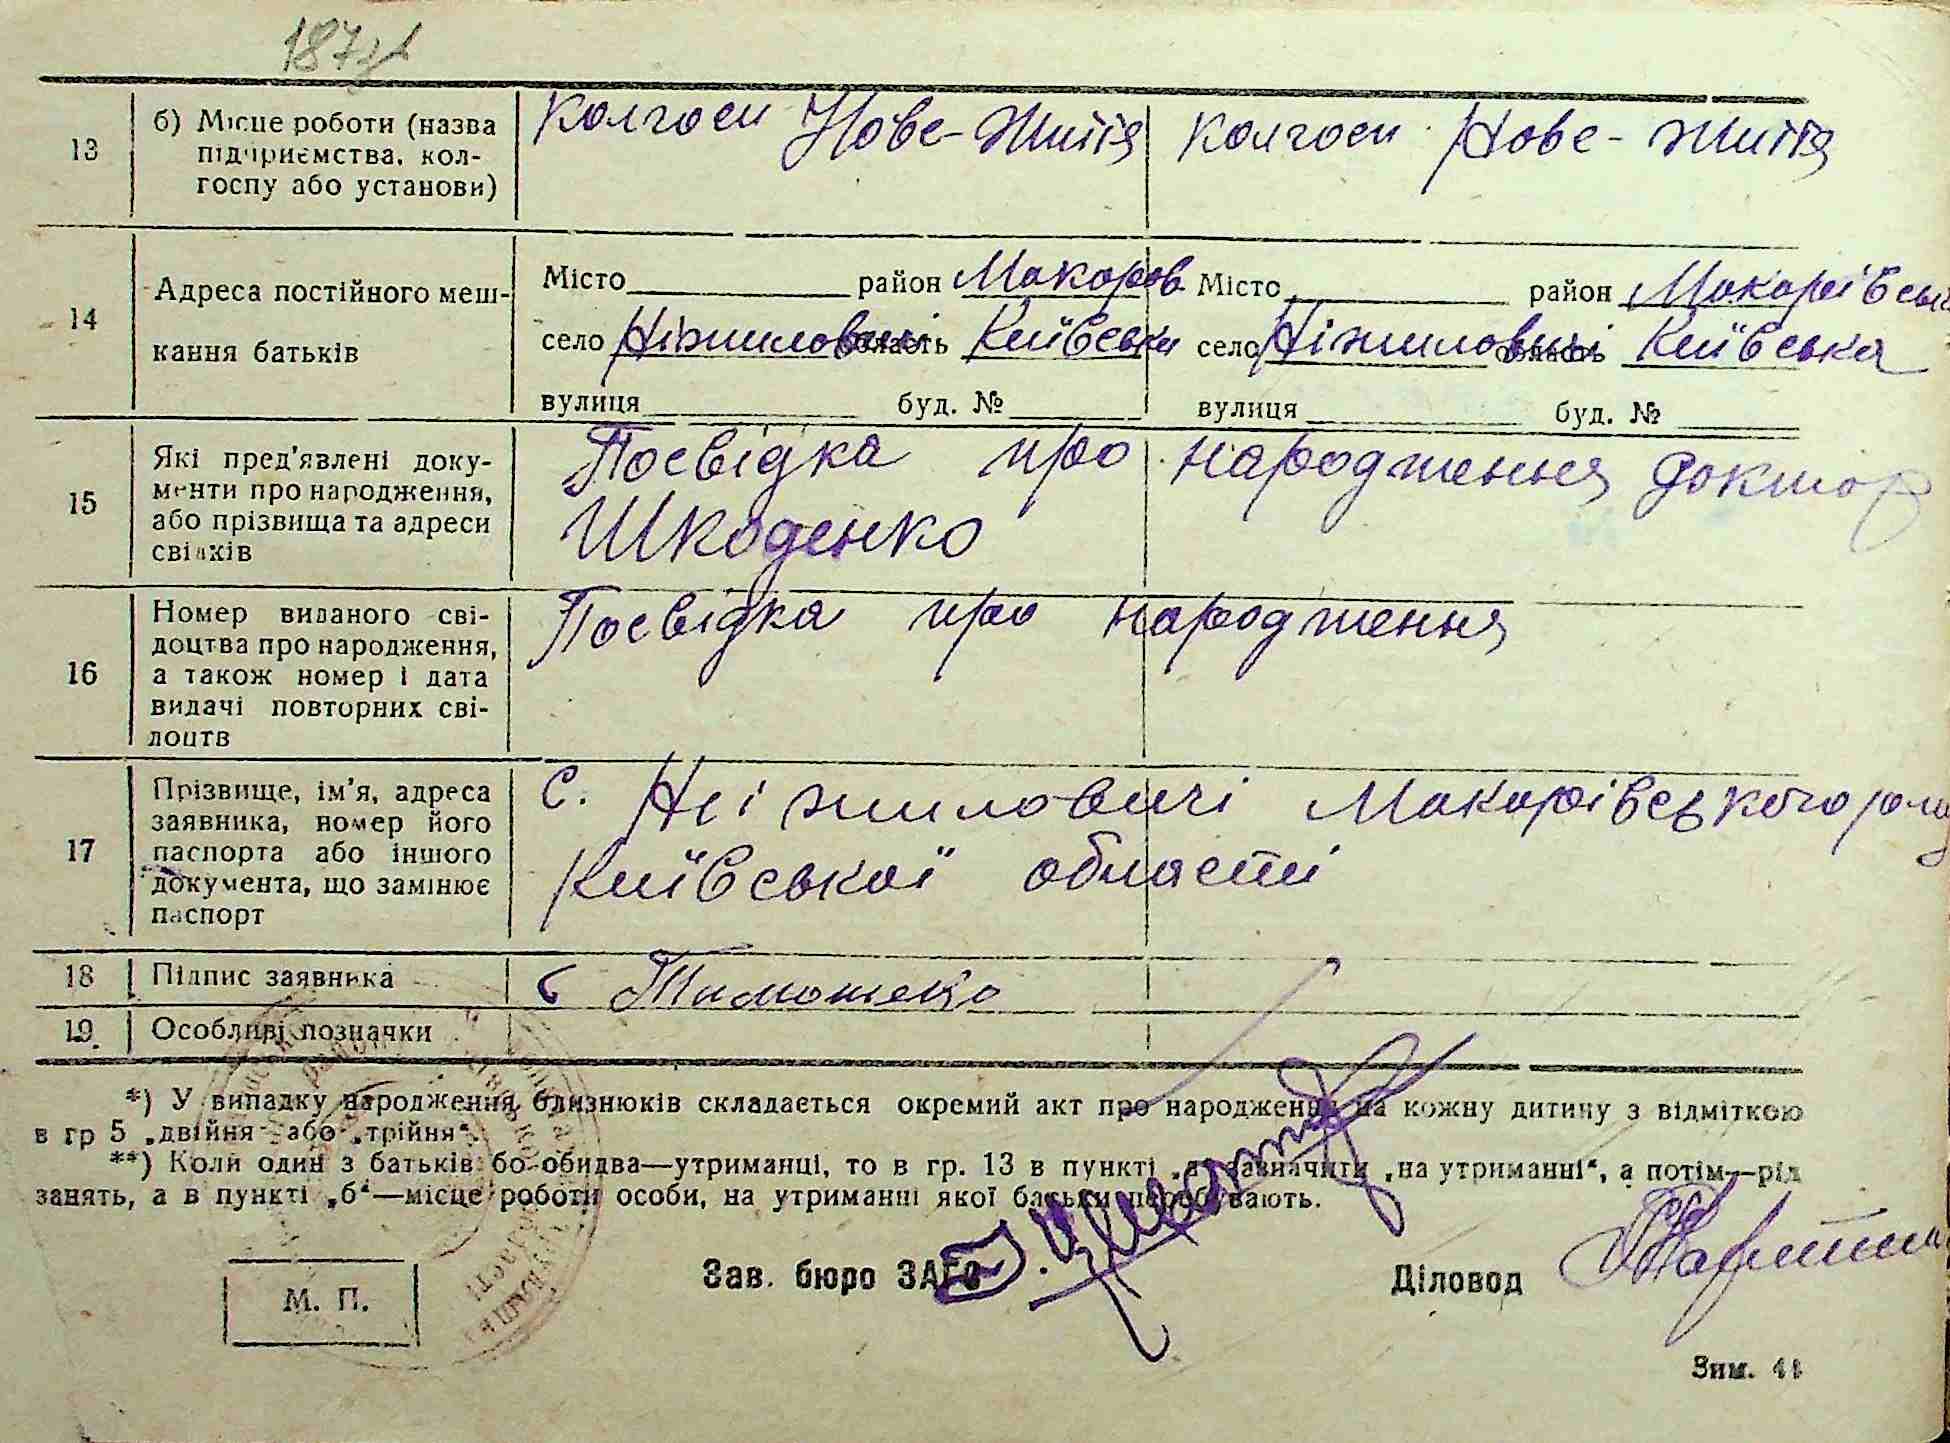 187
13
б) Місце роботи (назва
підприємства, кол-
госпу або установи)
Колгосп Нове-Життя
Колгосп Нове-Життя
14
Адреса постійного меш-
кання батьків
Місто район Макоров
село Ніжиловичі область Київська
вулиця буд. №
Місто район Макорівськ
село Ніжиловичі область Київська
вулиця буд. №
15
Які пред'явлені доку-
менти про народження,
або прізвища та адреси
свідків
Посвідка про народження доктор
Шкоденко
16
Номер виданого сві-
доцтва про народження,
а також номер і дата
видачі повторних сві-
доцтв
Посвідка про народження
17
Прізвище, ім'я, адреса
заявника, номер його
паспорта або іншого
документа, що замінює
паспорт
с. Ніжиловичі Макорівського
Київської області
18
Підпис заявника
Тимошенко
19.
Особливі позначки
*) У випадку народження близнюків складається окремий акт про народження на кожну дитину з відміткою
в гр 5 „двійня“ або „трійня“.
**) Коли один з батьків бо обидва—утриманці, то в гр. 13 в пункті „а“ зазначити „на утриманні“, а потім—рід
занять, а в пункті „б“—місце роботи особи, на утриманні якої батьки перебувають.
М. П.
Зав. бюро ЗАГС
Діловод
Зим. 44